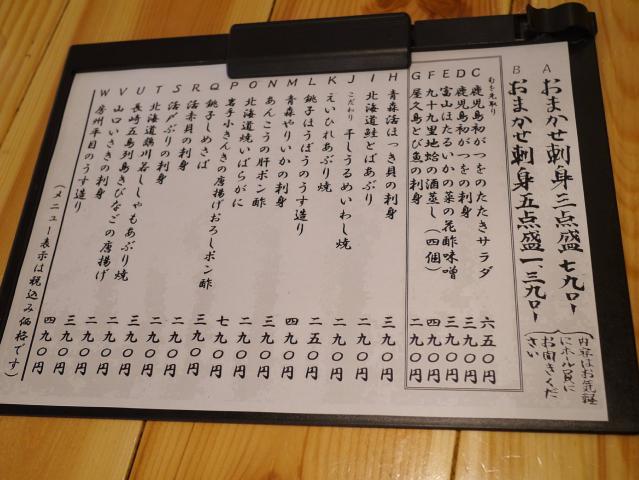 A おまかせ刺身三点盛 七九〇ー
B おまかせ刺身五点盛 一三九〇ー
内容はお気軽にホール員にお聞きください
旬を先取り
C 鹿児島初がつをのたたきサラダ 六五〇円
D 鹿児島初がつをの刺身 三九〇円
E 富山ほたるいかの菜の花酢味噌 三九〇円
F 九十九里地蛤の酒蒸し(四個) 四九〇円
G 屋久島とび魚の刺身 二九〇円
H 青森活ほっき貝の刺身 三九〇円
I 北海道鮭とばあぶり 二九〇円
J こだわり 干しうるめいわし焼 二九〇円
K えいひれあぶり焼 二九〇円
L 銚子ほうぼうのうす造り 二五〇円
M 青森やりいかの刺身 四九〇円
N あんこうの肝ポン酢 三九〇円
O 北海道焼いばらがに 二九〇円
P 岩手小きんきの唐揚げおろしポン酢 七九〇円
Q 銚子しめさば 三九〇円
R 活赤貝の刺身 三九〇円
S 活〆ぶりの刺身 二九〇円
T 北海道鵡川若ししゃもあぶり焼 二九〇円
U 長崎五島列島きびなごの唐揚げ 二九〇円
V 山口いさきの刺身 三九〇円
W 房州平目のうす造り 四九〇円
(メニュー表示は税込み価格です)